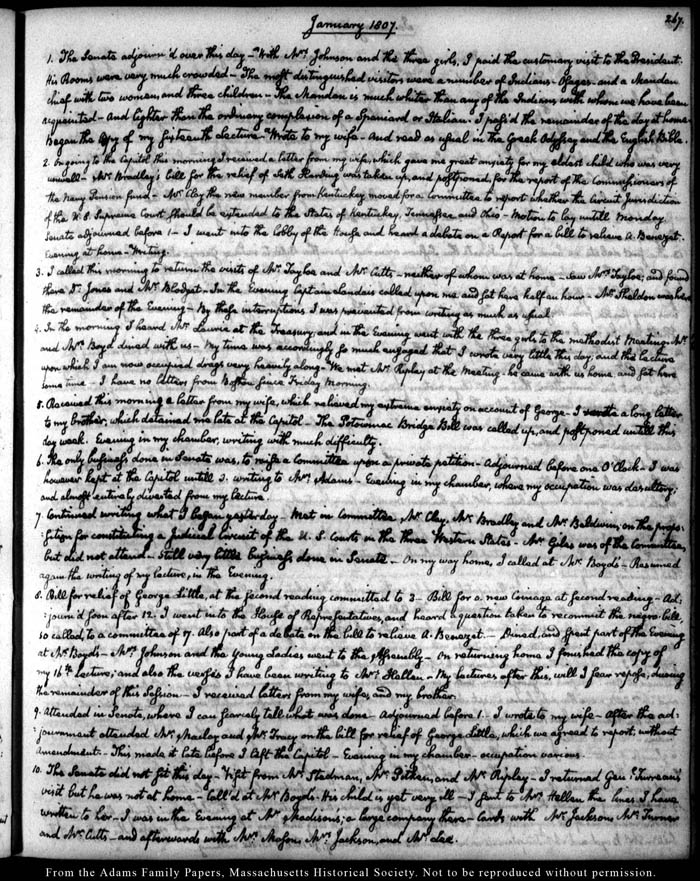 January 1807.
267.
1. The Senate adjourn'd over this day - With Mrs. Johnson and the three girls, I paid the customary visit to the President.
His Rooms were very much crowded - The most distinguished visitors were a number of Indians - Osages - and a Mandan
chief with two women, and three children - The Mandan is much whiter than any of the Indians with whom we have been
acquainted - And lighter than the ordinary complexion of a Spaniard or Italian. I pass'd the remainder of the day at home.
Began the copy of my sixteenth lecture - Wrote to my wife - And read as usual in the Greek Odyssey and the English Bible.
2. On going to the Capitol this morning I received a letter from my wife, which gave me great anxiety for my eldest child who was very
unwell - Mr. Bradley's Bill for the relief of Seth Harding was taken up, and postponed for the report of the Commissioners of
the Navy Pension fund - Mr. Clay the new member from Kentucky moved for a Committee to report whether the Circuit Jurisdiction
of the U.S. Supreme Court should be extended to the States of Kentucky, Tennessee and Ohio - Motion to lay untill Monday.
Senate adjourned before 1 - I went into the lobby of the House and heard a debate on a Report for a bill to relieve A. Benezet.
Evening at home - Writing.
3. I called this morning to return the visits of Mr. Tayloe and Mr. Cutts - neither of whom was at home - Saw Mrs. Tayloe; and found
there Dr. Jones and Mr. Blodget - In the Evening Captain Landais called upon me and sat here half an hour - Mr. Sheldon was here
the remainder of the Evening - By these interruptions I was prevented from writing as much as usual.
4. In the morning I heard Mr. Laurie at the Treasury, and in the Evening went with the three girls to the methodist Meeting. Mr.
and Mrs. Boyd dined with us - My time was accordingly so much engaged that I wrote very little this day, and the lecture
upon which I am now occupied drags very heavily along - We met Mr. Ripley at the Meeting - he came with us home and sat here
some time - I have no letter from Boston since Friday Morning.
5. Received this morning a letter from my wife, which relieved my extreme anxiety on account of George - I wrote a long letter
to my brother, which detained me late at the Capitol - The Potowmac Bridge Bill was called up, and postponed untill this
day week. Evening in my chamber, writing with much difficulty.
6. The only business done in Senate was, to raise a Committee upon a private petition - Adjourned before one O'Clock - I was
however kept at the Capitol untill 3. writing to Mrs. Adams - Evening in my chamber, where my occupation was desultory;
and almost entirely diverted from my lecture.
7. Continued writing what I began yesterday - Met in Committee, Mr. Clay, Mr. Bradley and Mr. Baldwin, on the propo:
:sition for constituting a judicial Circuit of the U.S. Courts in the three Western States - Mr. Giles was of the Committee,
but did not attend - Still very little business done in Senate - On my way home, I called at Mr. Boyd's - Resumed
again the writing of my lecture, in the Evening.
8. Bill for relief of George Little, at the second reading committed to 3 - Bill for a new Coinage at second reading - Ad:
:journ'd soon after 12. I went into the House of Representatives, and heard a question taken to recommit the negro-bill,
so called, to a committee of 7. Also part of a debate on the bill to relieve A. Benezet - Dined, and spent part of the Evening
at Mr. Boyd's - Mrs. Johnson and the Young Ladies went to the Assembly - On returning home I finished the copy of
my 16th. lecture; and also the verses I have been writing to Mrs. Hellen - My lectures after this, will I fear repose, during
the remainder of this Session - I received letters from my wife, and my brother.
9. Attended in Senate, where I can scarcely tell what was done - Adjourned before 1. - I wrote to my wife - After the ad:
:journment attended Mr. Maclay and Mr. Tracy on the bill for relief of George Little, which we agreed to report, without
Amendment - This made it late before I left the Capitol - Evening in my chamber - occupation various.
10. The Senate did not sit this day - Visit from Mr. Stedman, Mr. Pitkin, and Mr. Ripley - I returned Genl. Turreau's
visit but he was not at home - Call'd at Mr. Boyd's - His child is yet very ill - I sent to Mrs. Hellen the lines I have
written to her - I was in the Evening at Mr. Madison's; a large company there - Cards with Mr. Jackson, Mrs. Turner
and Mr. Cutts - and afterwards with Mrs. Mrs. Jackson, and Mr. Lee.
From the Adams Family Papers, Massachusetts Historical Society. Not to be reproduced without permission.